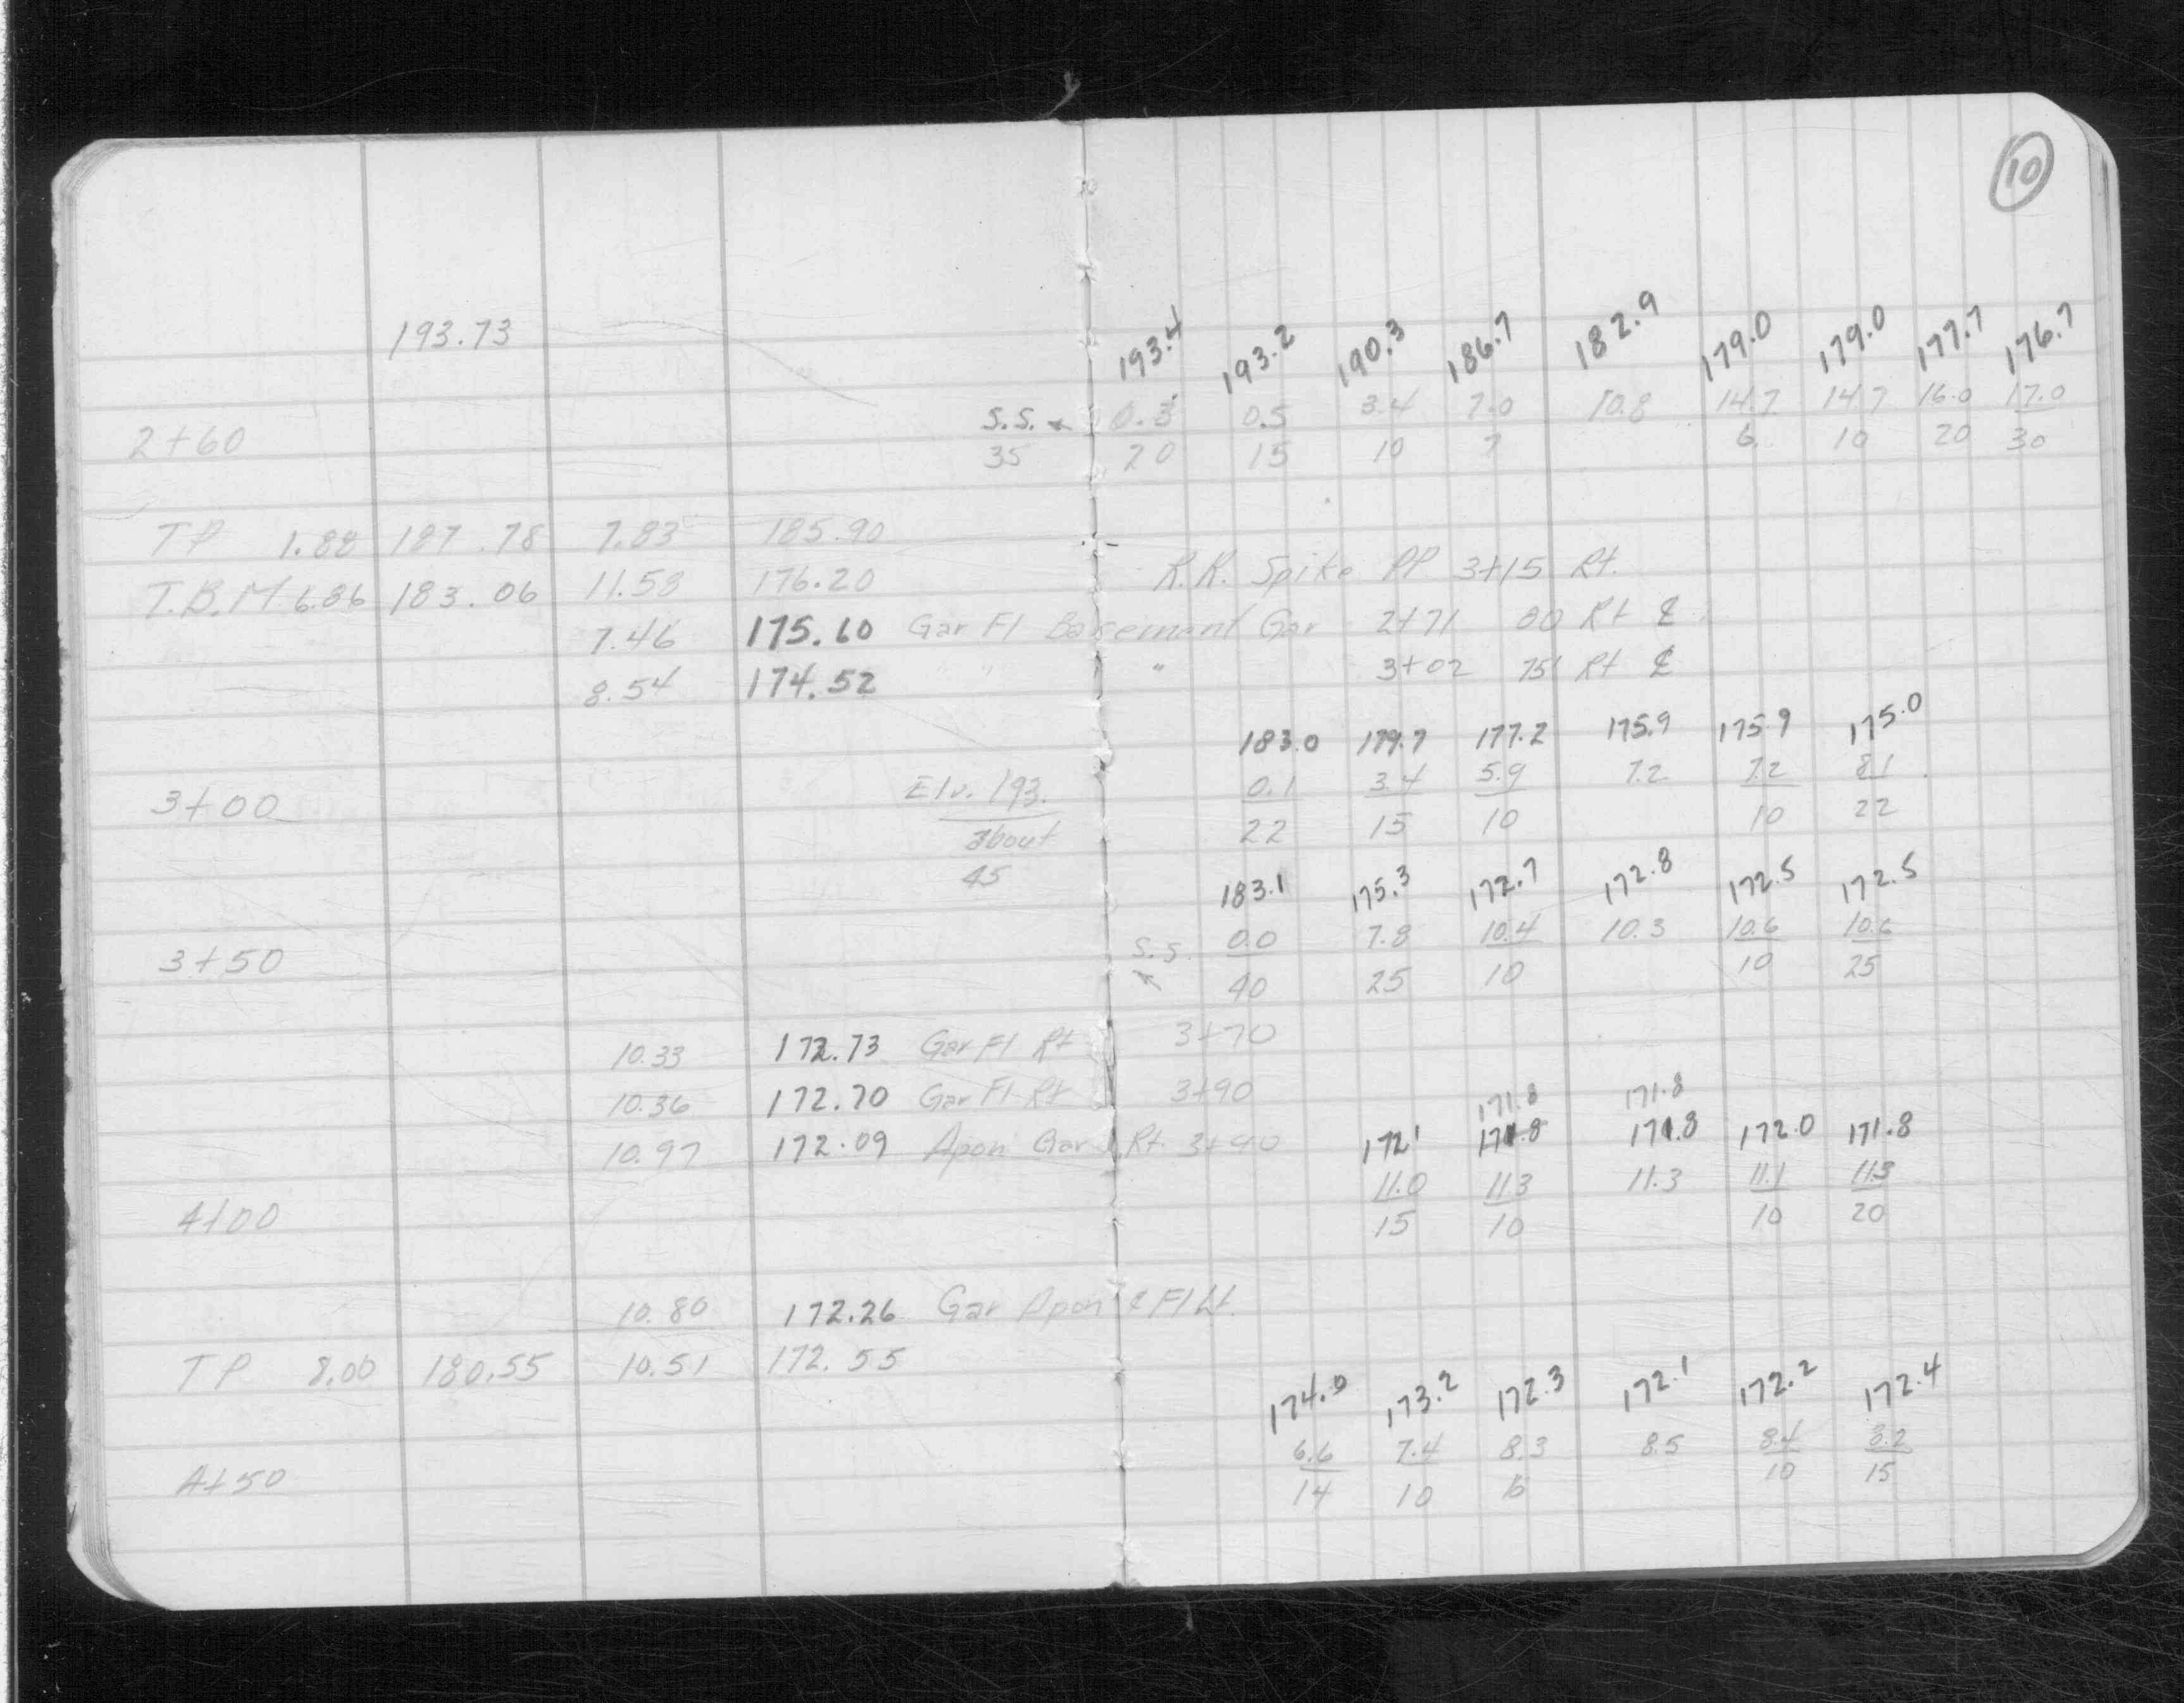 10
193.73
193.4 193.2 190.3 186.7 182.9 179.0 179.0 177.7 176.7
S.S. 0.3 0.5 3.4 7.0 10.8 14.7 14.7 16.0 17.0
2+60 35 20 15 10 7 6 10 20 30
TP 1.88 187.78 7.83 185.90
T.B.M 6.86 183.06 11.58 176.20 R.R. Spike PP 3+15 Rt.
7.46 175.60 Gar Fl Basement Gar 2+71 80 Rt ℄
8.54 174.52 " " 3+02 75' Rt ℄
183.0 179.7 177.2 175.9 175.9 175.0
Elv. 193. 0.1 3.4 5.9 7.2 7.2 8.1
3+00 about 22 15 10 10 22
45 183.1 175.3 172.7 172.8 172.5 172.5
S.S. 0.0 7.8 10.4 10.3 10.6 10.6
3+50 40 25 10 10 25
10.33 172.73 Gar Fl Rt 3+70
10.36 172.70 Gar Fl Rt 3+90
171.8 171.8
10.97 172.09 Apon Gar Rt. 3+90 172' 171.8 171.8 172.0 171.8
11.0 11.3 11.3 11.1 11.3
4+00 15 10 10 20
10.80 172.26 Gar Apon & Fl Lt.
TP 8.00 180.55 10.51 172.55
174.0 173.2 172.3 172.1 172.2 172.4
6.6 7.4 8.3 8.5 8.4 8.2
4+50 14 10 6 10 15